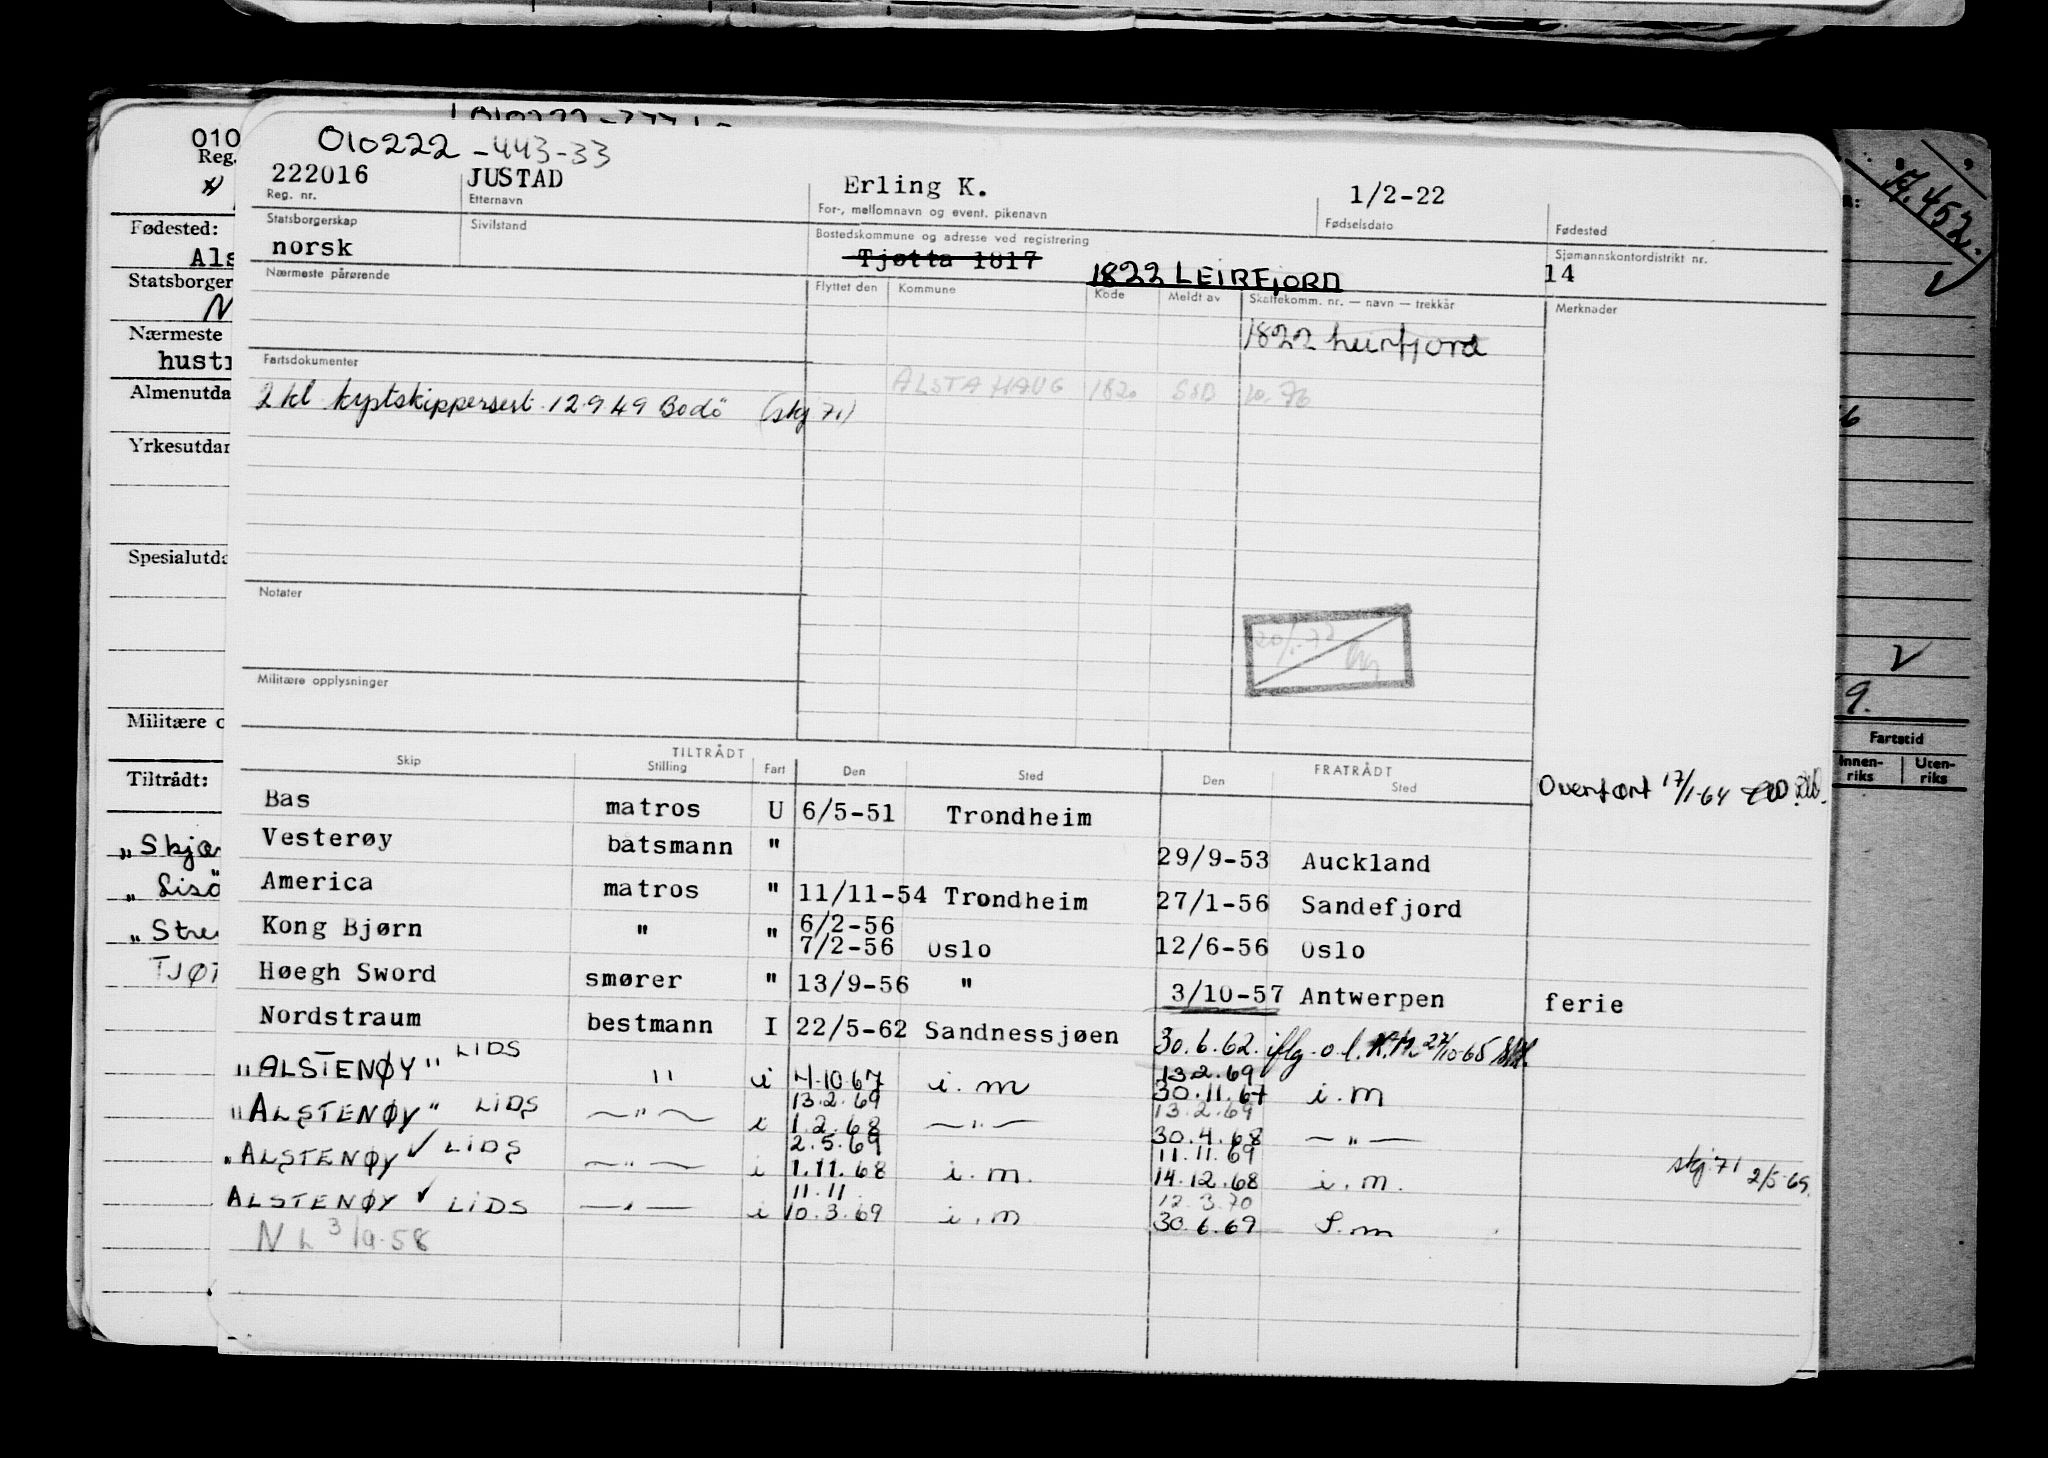 010222-443-33
222016 JUSTAD Erling K. 1/2-22
Reg. nr. Etternavn For-, mellomnavn og event. pikenavn Fødselsdato Fødested
Statsborgerskap Sivilstand Bostedskommune og adresse ved registrering Sjømannskontordistrikt nr.
norsk Tjøtta 1817 1822 LEIRFJORD 14
Nærmeste pårørende Flyttet den Kommune Kode Meldt av Skattekomm. nr. — navn — trekkår Merknader
1822 Leirfjord
Fartsdokumenter
ALSTAHAUG 1820 SSB 10.76
2 kl kystskippersert. 12.9.49 Bodö (skj 71)
Notater
Militære opplysninger
TILTRÅDT FRATRÅDT
Skip Stilling Fart Den Sted Den Sted
Overført 17/1-64
Bas matros U 6/5-51 Trondheim
Vesterøy båtsmann " 29/9-53 Auckland
America matros " 11/11-54 Trondheim 27/1-56 Sandefjord
6/2-56
Kong Bjørn " " 7/2-56 Oslo 12/6-56 Oslo
Høegh Sword smører " 13/9-56 " 3/10-57 Antwerpen ferie
Nordstraum bestmann I 22/5-62 Sandnessjøen 30.6.62. iflg. o.l. 27/10-65
13.2.69
"ALSTENØY" LIDS " i 4.10.67 i.m 30.11.67 i.m
13.2.69 13.2.69
"ALSTENØY" LIDS — " — i 1.2.68 — " — 30.4.68 — " —
2.5.69 11.11.69
"ALSTENØY ✓ LIDS — " — i 1.11.68 i.m. 14.12.68 i.m. skj. 71 2/5-69.
11.11. 12.3.70
ALSTENØY ✓ LIDS — " — i 10.3.69 i.m 30.6.69 S.m
N L 3/9-58
010
Reg.
Fødested:
Als
Statsborger
N
Nærmeste
hust
Almenutda
Yrkesutdan
Spesialutda
Militære o
Tiltrådt:
"Skjær
"Lisö
"Stre
TJØT
452.
9.
Fartstid
Innenriks Utenriks